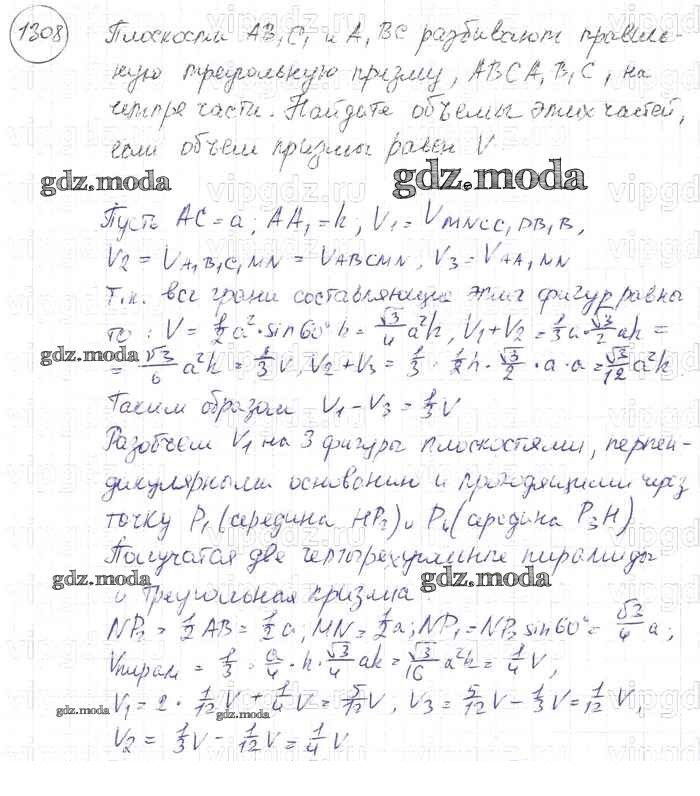 1308
Плоскости AB₁C₁ и A₁BC разбивают правиль-
ную треугольную призму, ABCA₁B₁C₁ на
четыре части. Найдите объемы этих частей,
если объем призмы равен V
gdz.moda gdz.moda
Пусть AC = a; AA₁ = h, V₁ = V_MNCC₁DB₁B,
V₂ = V_A₁B₁C₁MN = V_ABCMN, V₃ = V_AA₁MN
Т.к. все грани составляющие этих фигур равны
то: V = 1/2 a²·sin60° h = √3/4 a²h, V₁+V₂ = 1/3 a·√3/2 ah =
gdz.moda
= √3/6 a²h = 2/3 V, V₂+V₃ = 1/3 · 1/2 h · √3/2 · a·a = √3/12 a²h
Таким образом V₁ - V₃ = 1/3 V
Разобъем V₁ на 3 фигуры плоскостями, перпен-
дикулярными основании и проходящими через
точку P₁ (середина HP₂) и P₄ (середина P₃H)
Получатся две четырехугольные пирамиды
gdz.moda gdz.moda
и треугольная призма
NP₂ = 1/2 AB = 1/2 a; MN = 1/2 a; NP₁ = NP₂ sin60° = √3/4 a;
V пирам = 1/3 · a/4 · h · √3/4 ah = √3/16 a²h = 1/4 V,
V₁ = 2 · 1/12 V + 1/4 V = 5/12 V, V₃ = 5/12 V - 1/3 V = 1/12 V,
gdz.moda gdz.moda
V₂ = 1/3 V - 1/12 V = 1/4 V
gdz.moda